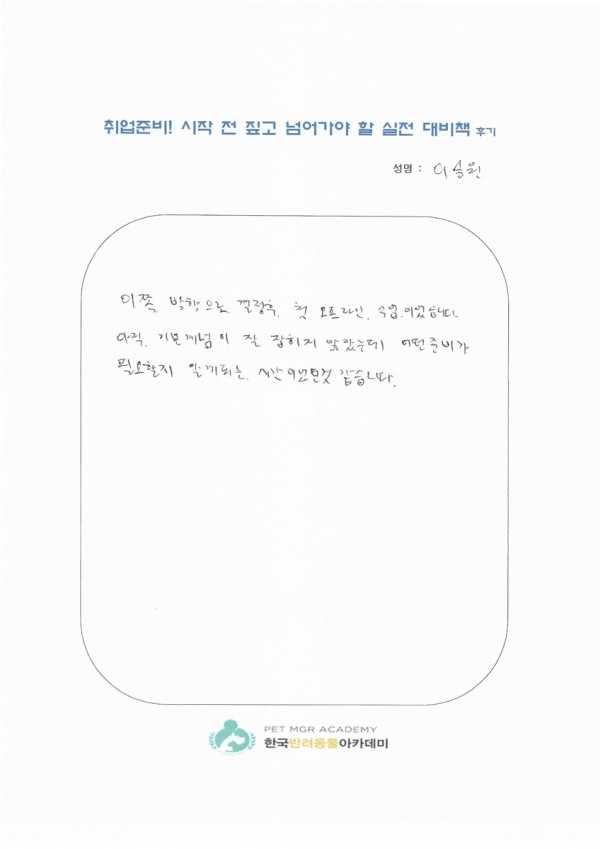 취업준비! 시작 전 짚고 넘어가야 할 실전 대비책 후기
성명 : 이승원
이쪽 방향으로 결정후, 첫 오프라인, 수업이었습니다.
아직, 기본개념이 잘 잡히지 않았는데 어떤준비가
필요할지 알게되는, 시간이었던것 같습니다.
PET MGR ACADEMY
한국반려동물아카데미